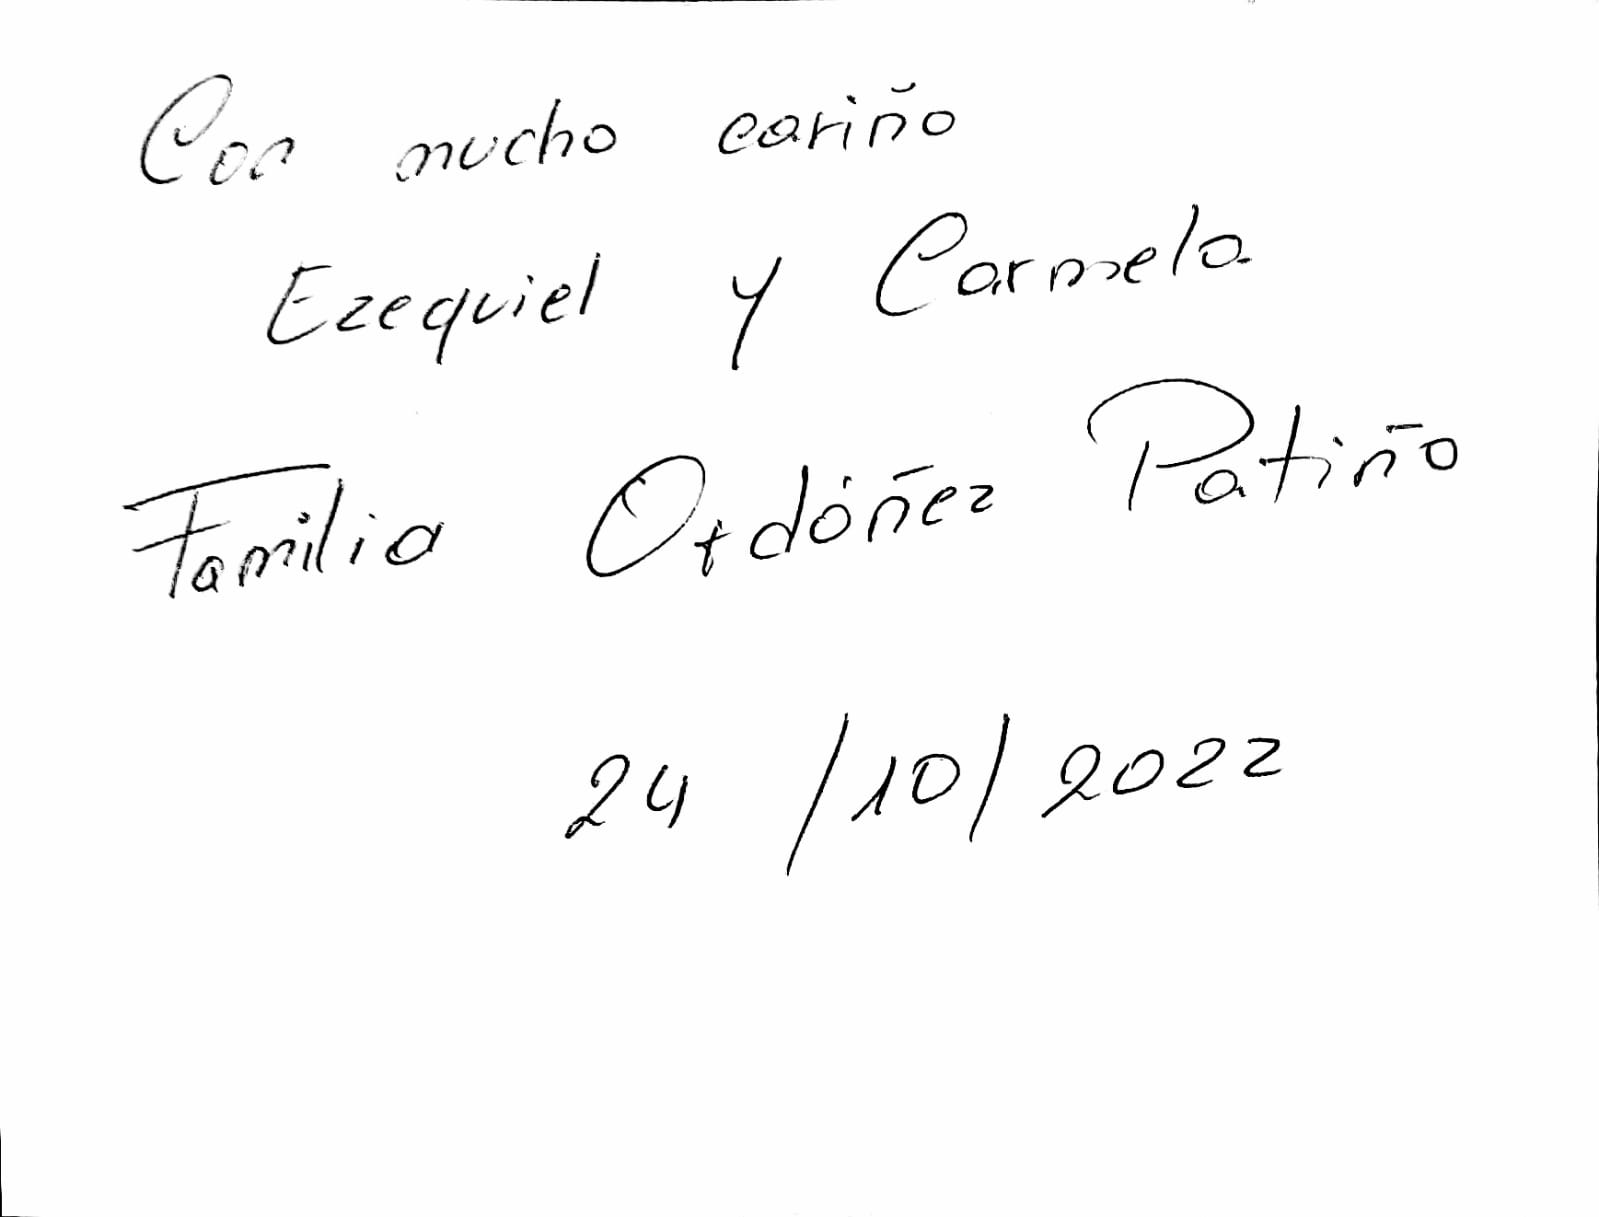 Con mucho cariño
Ezequiel y Carmela
Familia Ordóñez Patiño
24/10/2022